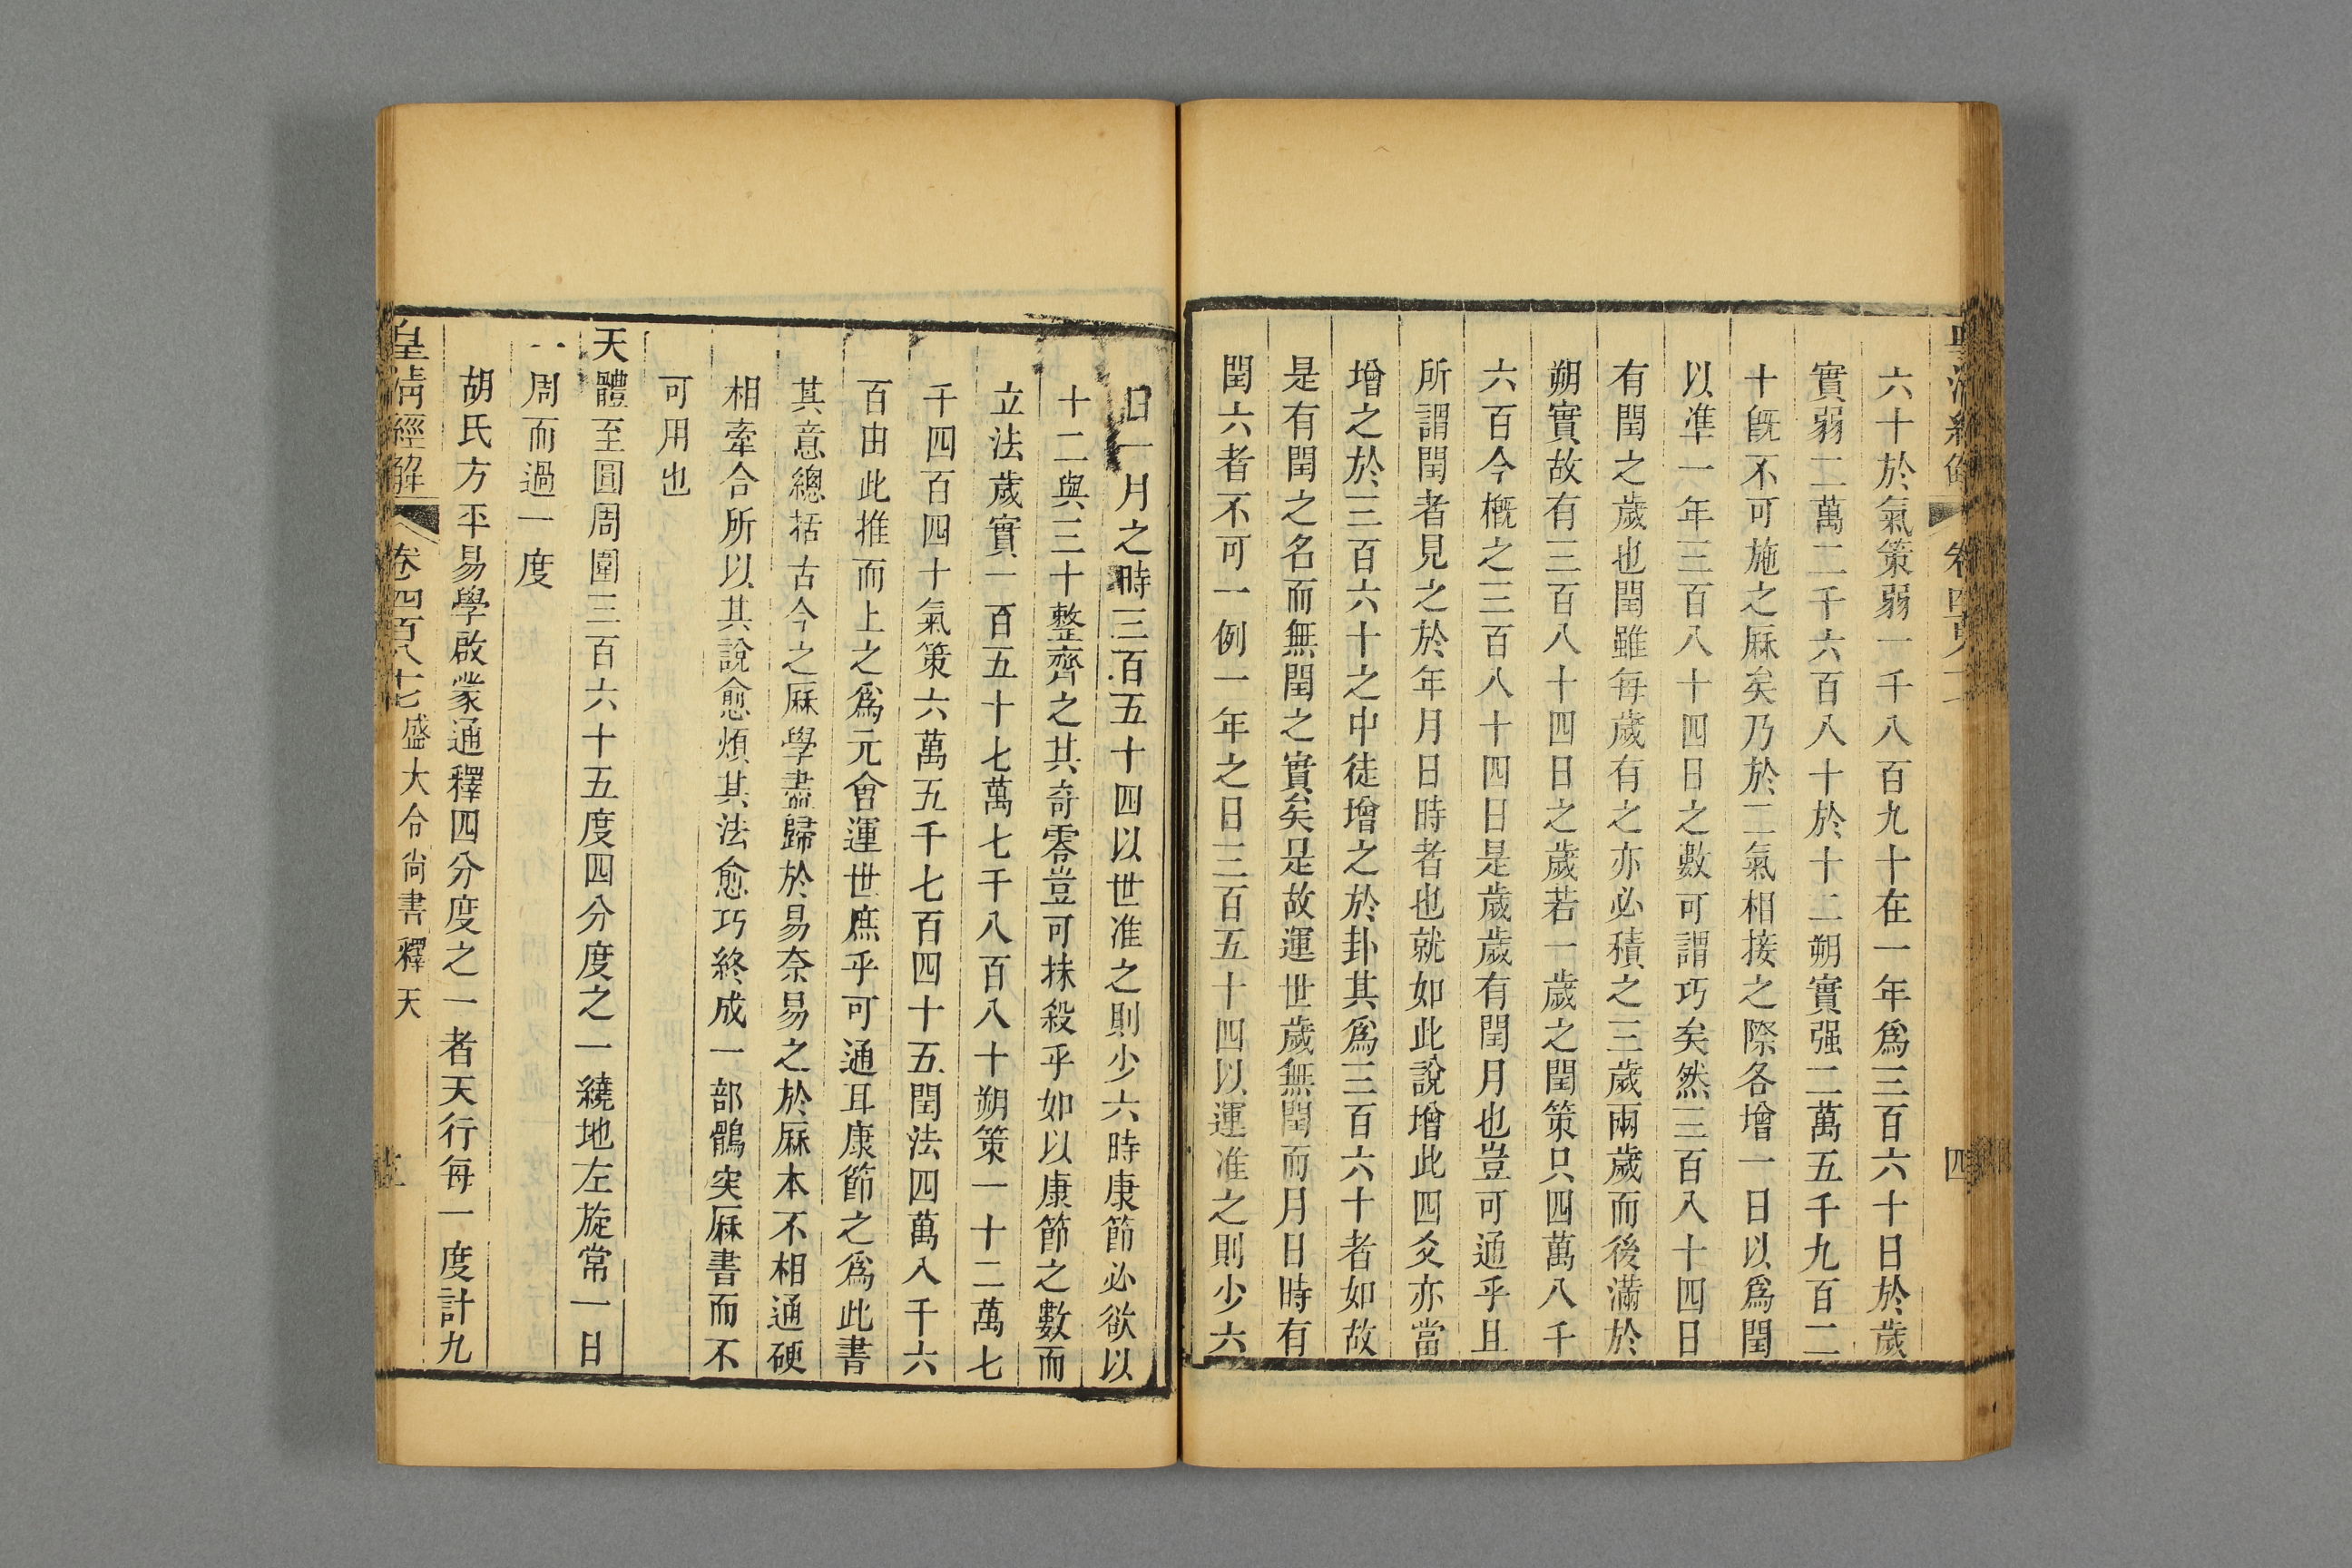 六十於氣策弱一千八百九十在一年爲三百六十日於歲
實弱二萬二千六百八十於十二朔實强二萬五千九百二
十旣不可施之厤矣乃於二氣相接之際各增一日以爲閏
以準一年三百八十四日之數可謂巧矣然三百八十四日
有閏之歲也閏雖每歲有之亦必積之三歲兩歲而後滿於
朔實故有三百八十四日之歲若一歲之閏策只四萬八千
六百今概之三百八十四日是歲歲有閏月也豈可通乎且
所謂閏者見之於年月日時者也就如此說增此四爻亦當
增之於三百六十之中徒增之於卦其爲三百六十者如故
是有閏之名而無閏之實矣是故運世歲無閏而月日時有
閏六者不可一例一年之日三百五十四以運准之則少六
日一月之時三百五十四以世准之則少六時康節必欲以
十二與三十整齊之其奇零豈可抹殺乎如以康節之數而
立法歲實一百五十七萬七千八百八十朔策一十二萬七
千四百四十氣策六萬五千七百四十五閏法四萬八千六
百由此推而上之爲元會運世庶乎可通耳康節之爲此書
其意總括古今之厤學盡歸於易奈易之於厤本不相通硬
相牽合所以其說愈煩其法愈巧終成一部鶻突厤書而不
可用也
天體至圓周圍三百六十五度四分度之一繞地左旋常一日
一周而過一度
胡氏方平易學啟蒙通釋四分度之一者天行每一度計九
皇清經解 卷四百八十七 盛大令尚書釋天